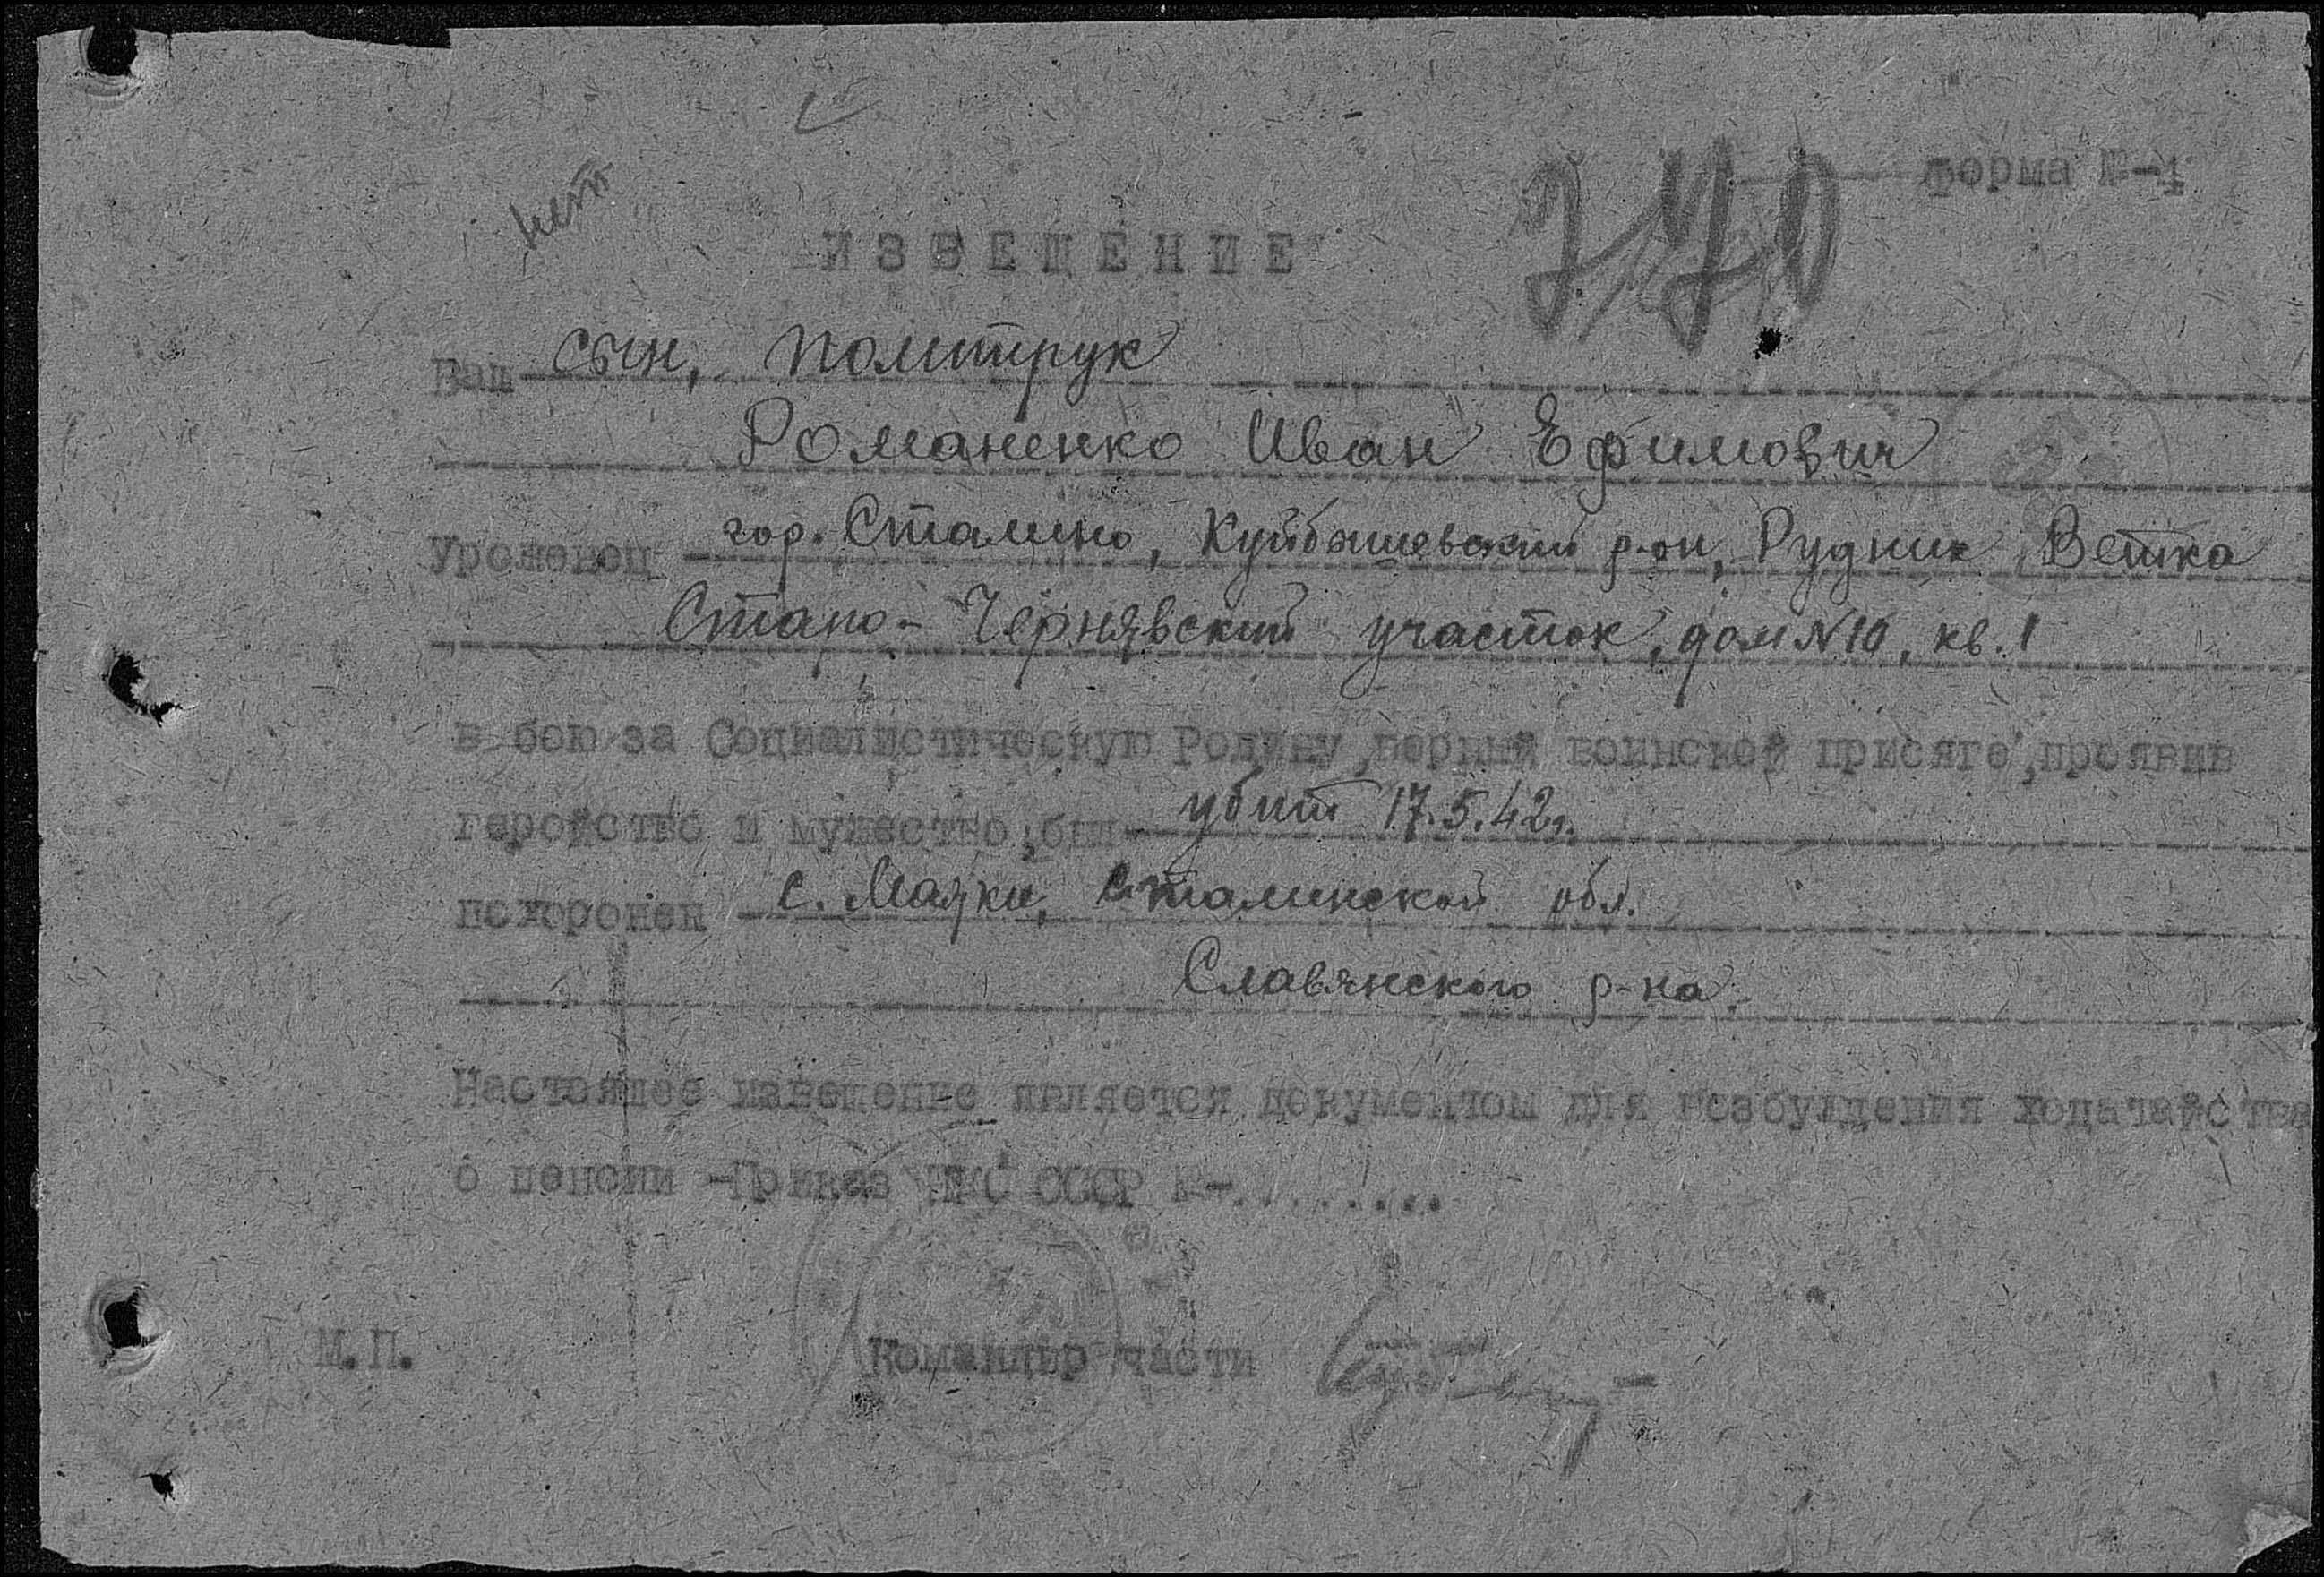 нет
форма №-4
ИЗВЕЩЕНИЕ
Ваш сын, политрук
Романенко Иван Ефимович
Уроженец гор. Сталино, Куйбышевский р-он, Рудник Ветка
Стапо-Чернявский участок, дом №10, кв. 1
в бою за Социалистическую Родину, верный воинской присяге, проявив
геройство и мужество, был убит 17.5.42г.
похоронен с. Маяки, Сталинской обл.
Славянского р-на.
Настоящее извещение является документом для возбуждения ходатайства
о пенсии -Приказ НКО СССР №-.........
М.П. Командир части